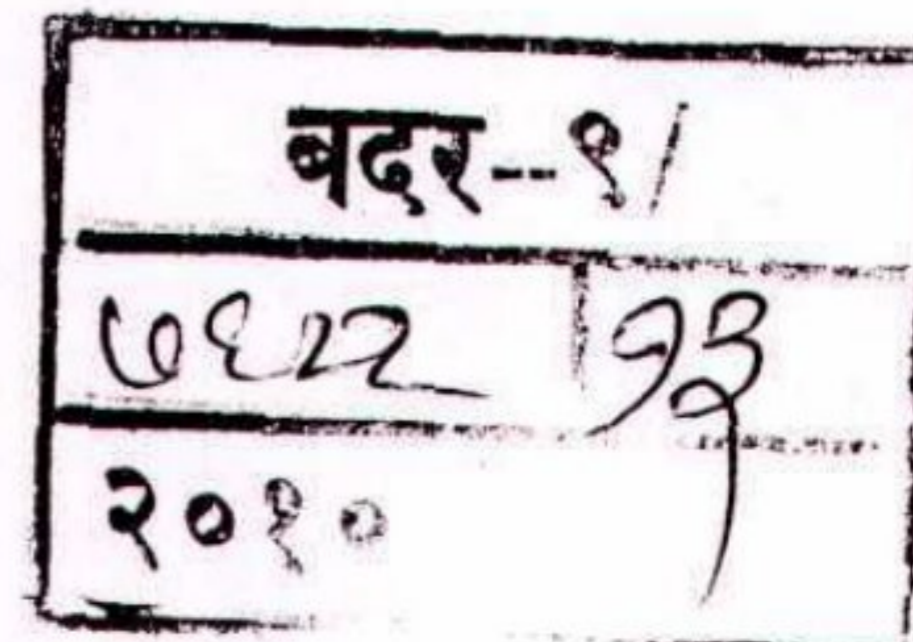 बदर--१/
७६२२ १३
२०१०